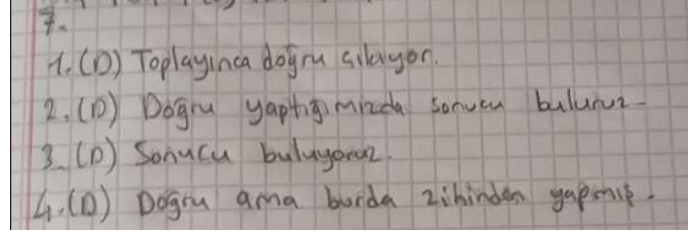 7.
1. (D) Toplayınca doğru çıkıyor.
2. (D) Doğru yaptığımızda sonucu buluruz.
3. (D) Sonucu buluyoruz.
4. (D) Doğru ama burda zihinden yapmış.